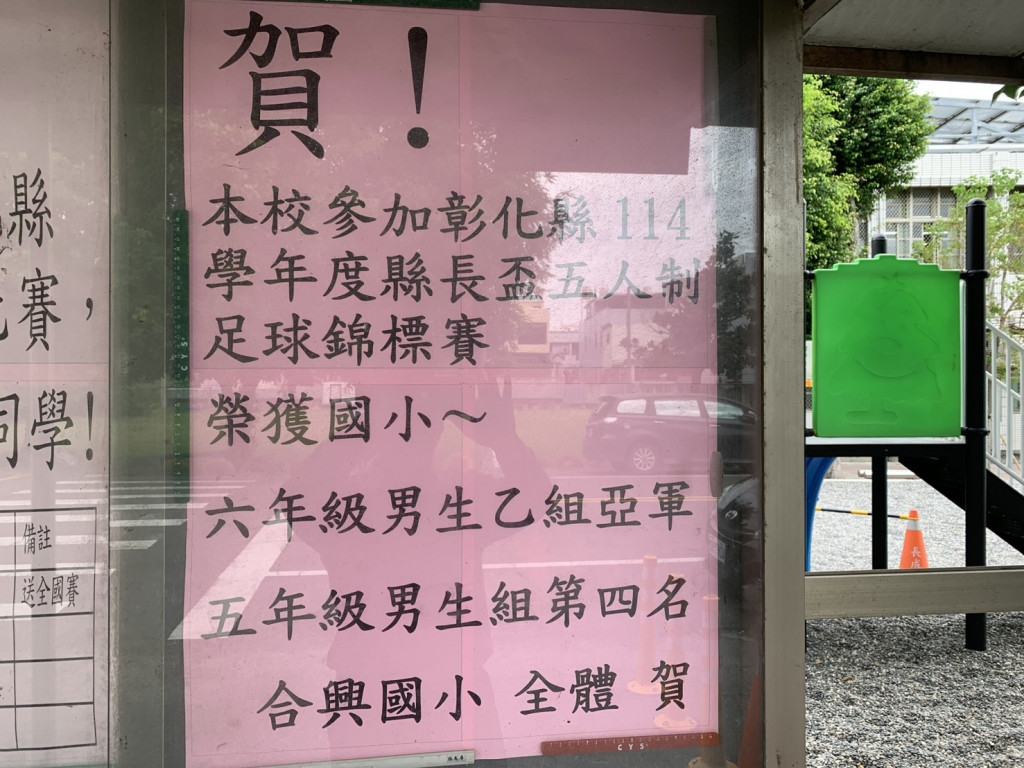 縣
賽，
同學！
備註
送全國賽
賀！
本校參加彰化縣114
學年度縣長盃五人制
足球錦標賽
榮獲國小～
六年級男生乙組亞軍
五年級男生組第四名
合興國小 全體 賀
CYS
CYS